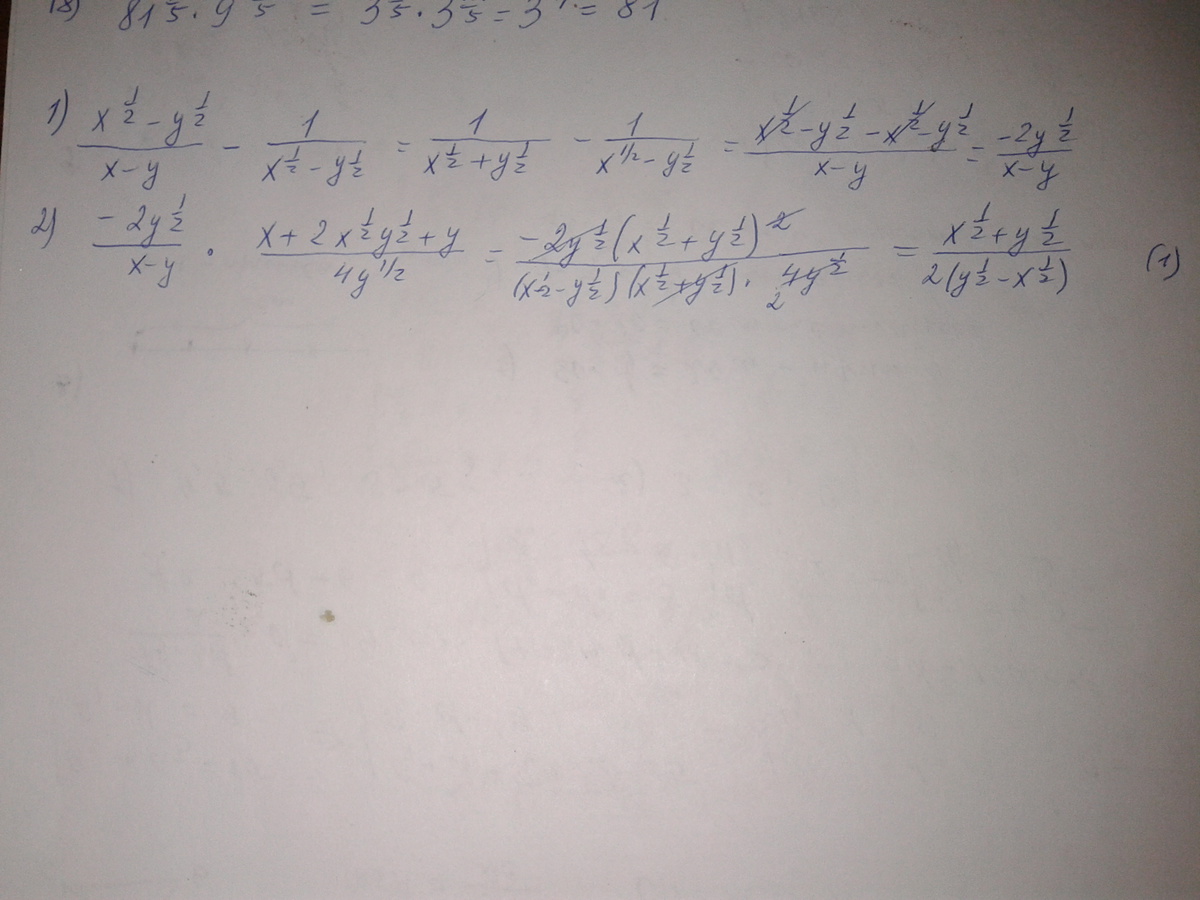 18) 81^{/5} · 9^{/5} = 3^{/5} · 3^{/5} = 3 = 81
1) \frac{x^{\frac{1}{2}} - y^{\frac{1}{2}}}{x-y} - \frac{1}{x^{\frac{1}{2}} - y^{\frac{1}{2}}} = \frac{1}{x^{\frac{1}{2}} + y^{\frac{1}{2}}} - \frac{1}{x^{1/2} - y^{\frac{1}{2}}} = \frac{x^{\frac{1}{2}} - y^{\frac{1}{2}} - x^{\frac{1}{2}} - y^{\frac{1}{2}}}{x-y} = \frac{-2y^{\frac{1}{2}}}{x-y}
2) \frac{-2y^{\frac{1}{2}}}{x-y} · \frac{x + 2x^{\frac{1}{2}}y^{\frac{1}{2}} + y}{4y^{1/2}} = \frac{-2y^{\frac{1}{2}}(x^{\frac{1}{2}} + y^{\frac{1}{2}})^{2}}{(x^{\frac{1}{2}} - y^{\frac{1}{2}})(x^{\frac{1}{2}} + y^{\frac{1}{2}}) · 4y^{\frac{1}{2}}} = \frac{x^{\frac{1}{2}} + y^{\frac{1}{2}}}{2(y^{\frac{1}{2}} - x^{\frac{1}{2}})} (1)